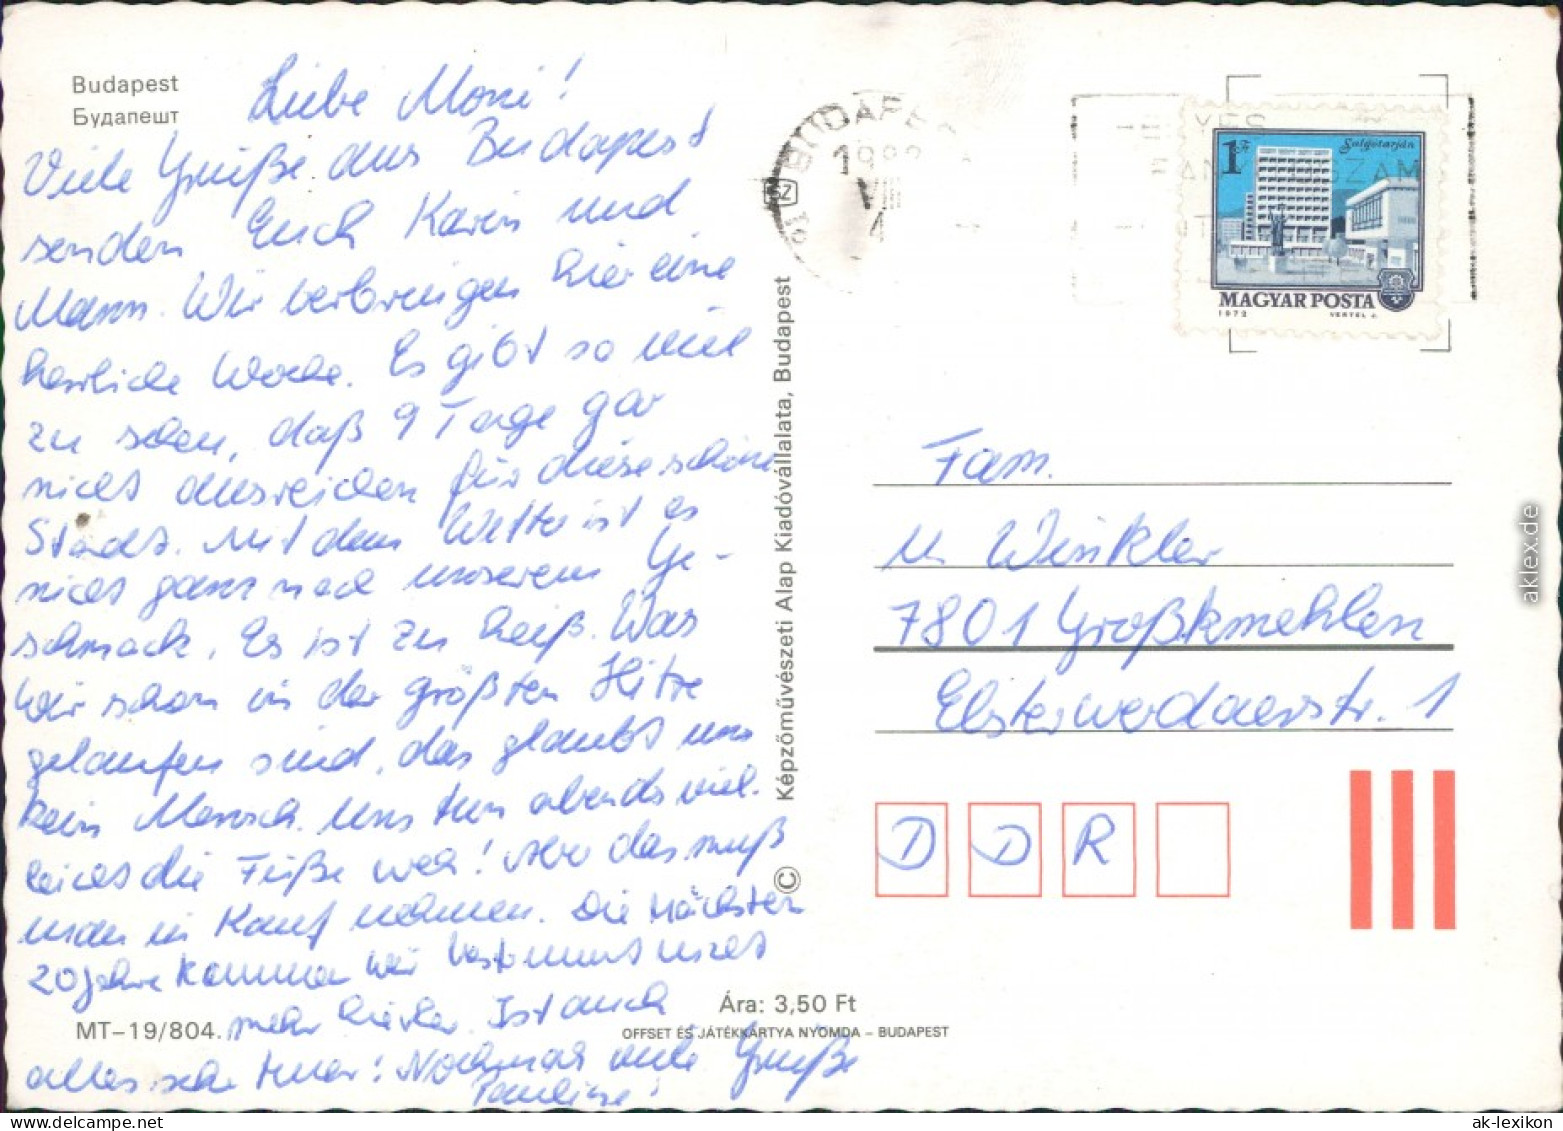 Budapest
Будапешт
Liebe Moni!
Viele Grüße aus Budapest
senden Euch Karin und
Mann. Wir verbringen hier eine
herrliche Woche. Es gibt so viel
zu sehen, daß 9 Tage gar
nicht ausreichen für diese schöne
Stadt. Mit dem Wetter ist es
nicht ganz nach unserem Ge-
schmack. Es ist zu heiß. Was
wir schon in der größten Hitze
gelaufen sind, das glaubt uns
kein Mensch. Uns tun abends viel-
leicht die Füße weh! Aber das muß
man in Kauf nehmen. Die nächsten
20 Jahre kommen wir bestimmt nicht
mehr hierher. Ist auch
alles sehr teuer! Nochmals viele Grüße
MT-19/804.
Képzőművészeti Alap Kiadóvállalata, Budapest
©
Ára: 3,50 Ft
OFFSET ÉS JÁTÉKKÁRTYA NYOMDA – BUDAPEST
BUDAPEST
VIII
4
1 Ft
Salgótarján
MAGYAR POSTA
1972
VERTEL J.
Fam.
M. Winkler
7801 Großkmehlen
Elsterwerdaerstr. 1
D D R
aklex.de
ak-lexikon.com